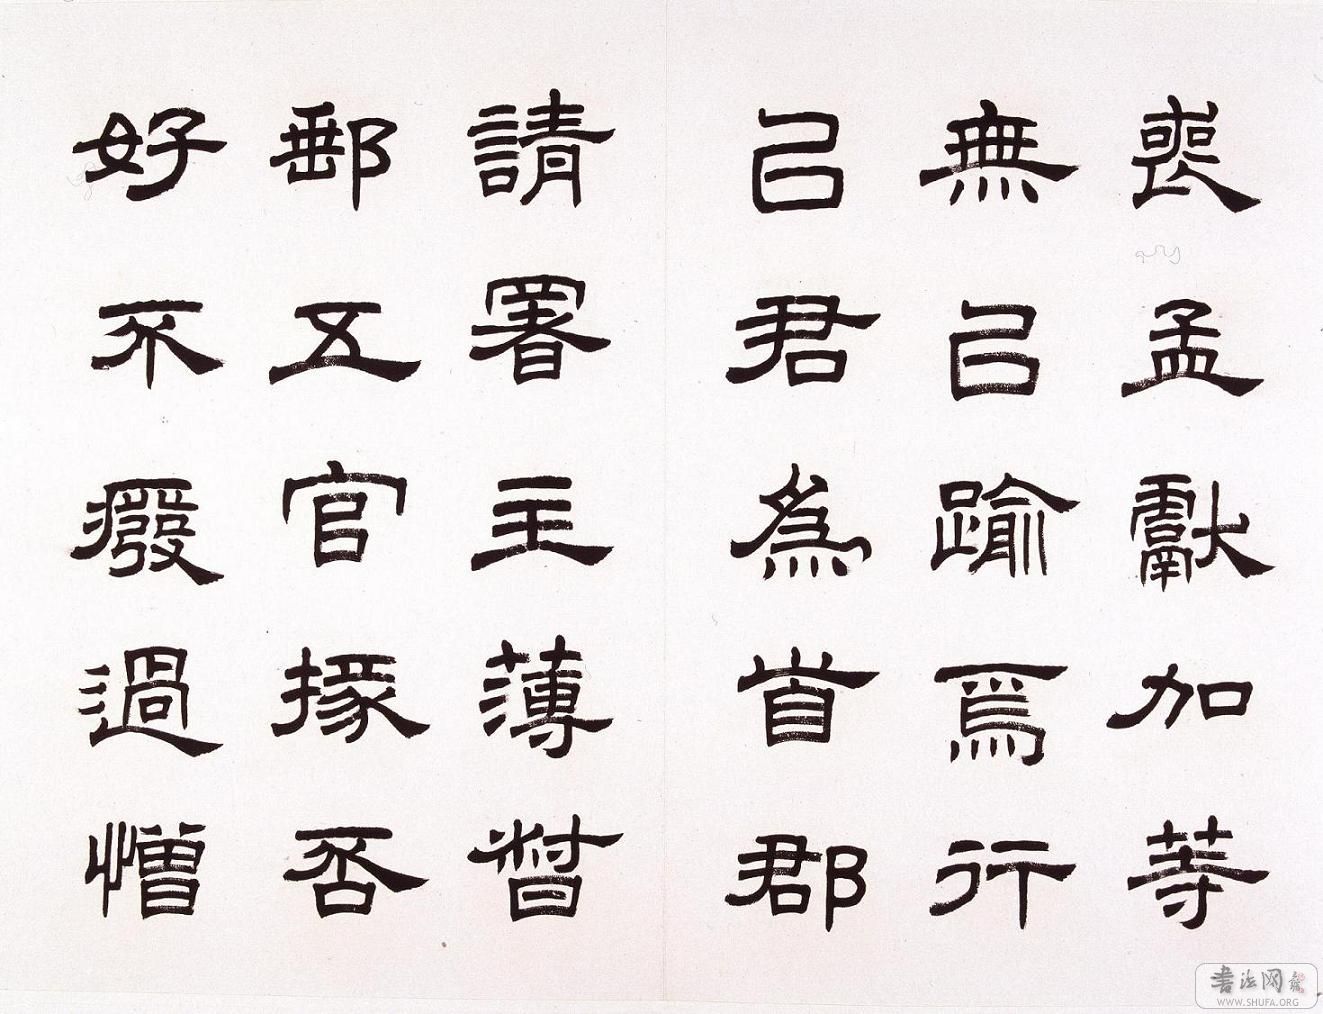 喪孟獻加等
無已踰焉行
已君為首郡
請署主薄督
郵五官掾否
好不癈過憎
書法网
WWW.SHUFA.ORG